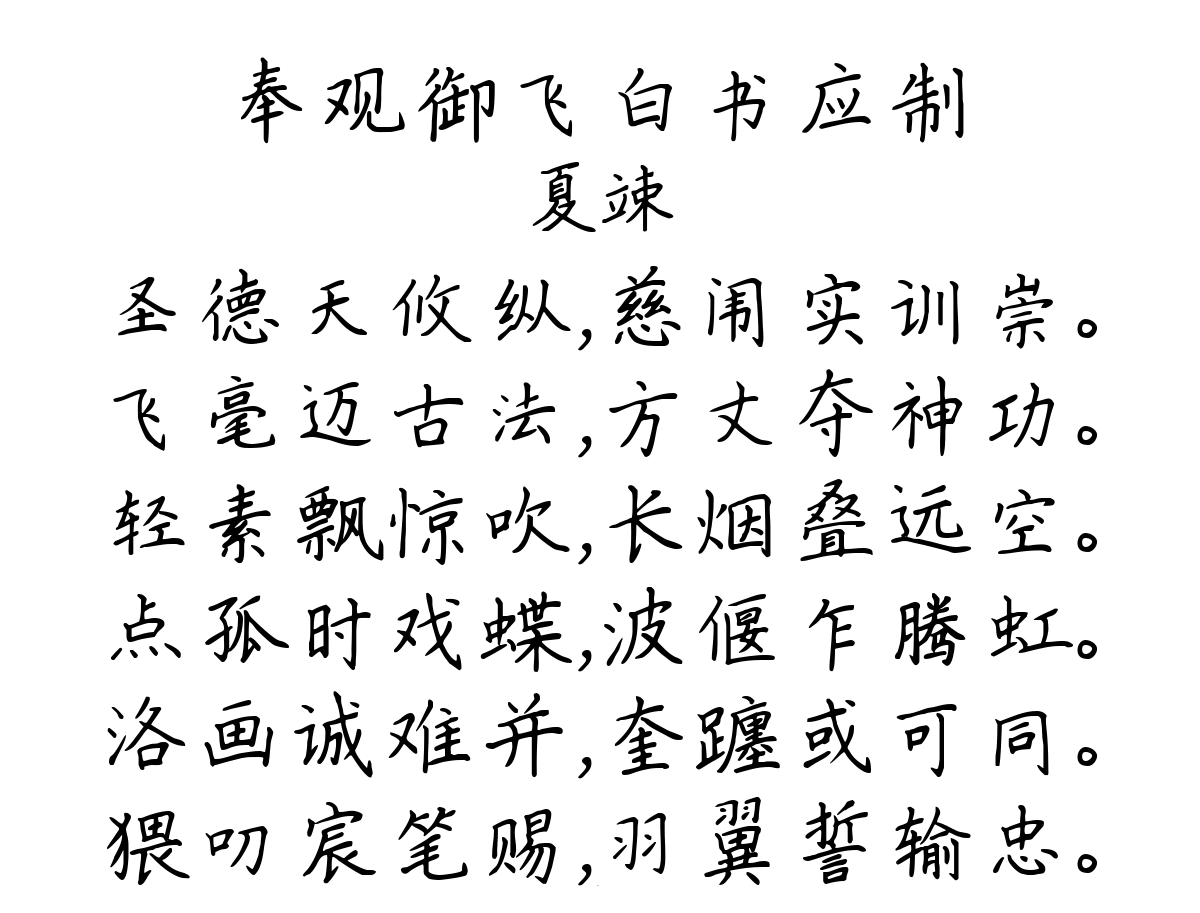 奉观御飞白书应制
夏竦
圣德天攸纵,慈闱实训崇。
飞毫迈古法,方丈夺神功。
轻素飘惊吹,长烟叠远空。
点孤时戏蝶,波偃乍腾虹。
洛画诚难并,奎躔或可同。
猥叨宸笔赐,羽翼誓输忠。